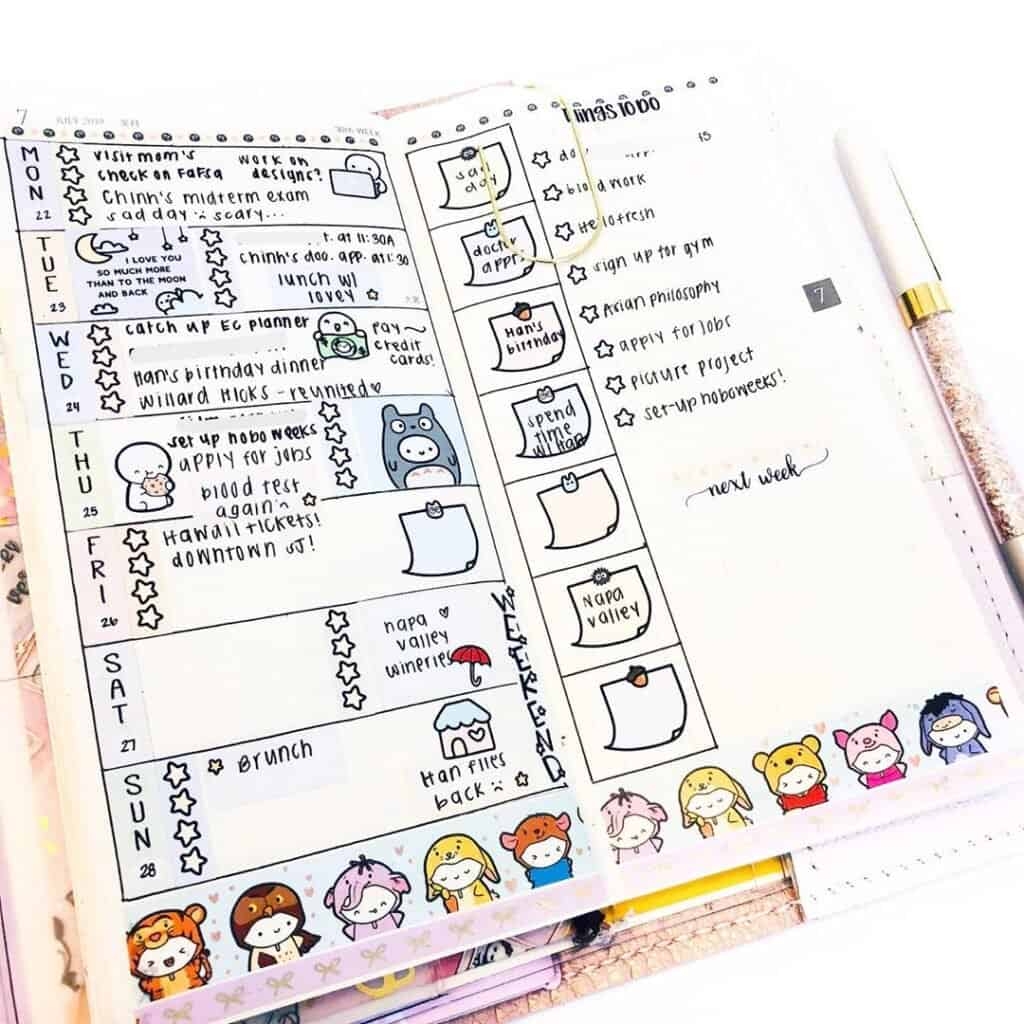 7 JULY 2019
30th WEEK
MON
22
visit mom's
check on Fafsa
work on
designs?
Chinh's midterm exam
sad day :( scary...
TUE
23
I LOVE YOU
SO MUCH MORE
THAN TO THE MOON
AND BACK
t. at 11:30A
chinh's doc. app. at 1:30
lunch w/
lovey
WED
24
catch up EC planner
pay~
credit
cards!
Han's birthday dinner
Willard Hicks - reunited
THU
25
set up hoboweeks
apply for jobs
blood test
again
FRI
26
Hawaii tickets!
downtown SJ!
SAT
27
napa
valley
wineries
WEEKEND
SUN
28
Brunch
Han flies
back :(
Things To Do
sad
day
doctor
appt.
Han's
birthday
spend
time
w/ Han
Napa
valley
15
blood work
Hellofresh
sign up for gym
Asian philosophy
apply for jobs
picture project
set-up hoboweeks!
7
next week